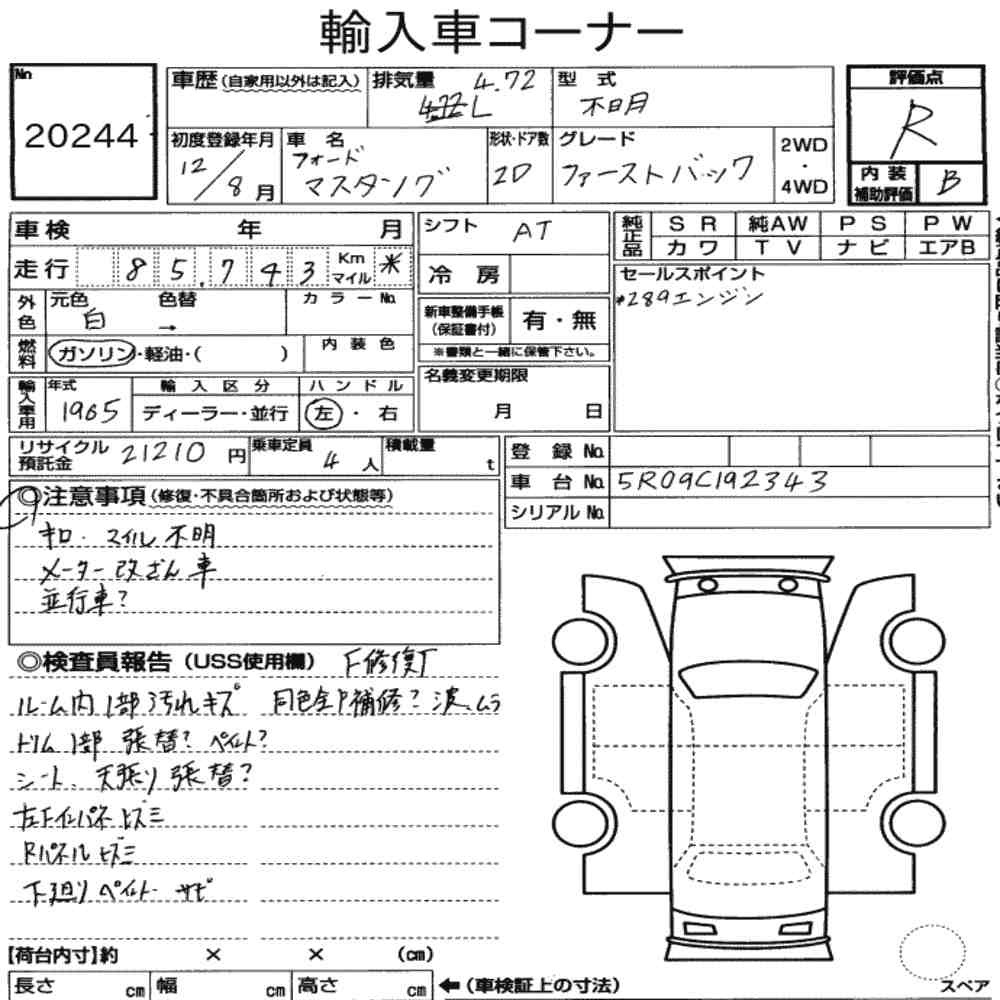 輸入車コーナー
No
20244
車歴(自家用以外は記入)
排気量 4.72
4.72 L
型式
不明
評価点
R
内装
補助評価 B
初度登録年月
12/8月
車名
フォード
マスタング
形状・ドア数
2D
グレード
ファーストバック
2WD
・
4WD
車検 年 月
シフト AT
純正品 SR 純AW PS PW
カワ TV ナビ エアB
走行 85,743 Km マイル *
冷房
セールスポイント
*289エンジン
外色 元色 色替 カラーNo.
白 →
新車整備手帳
(保証書付) 有・無
※書類と一緒に保管下さい。
燃料 ガソリン・軽油・( ) 内装色
名義変更期限
月 日
輸入車用 年式 輸入区分 ハンドル
1965 ディーラー・並行 左・右
リサイクル
預託金 21210円
乗車定員
4人
積載量
t
登録No.
車台No. 5R09C192343
シリアルNo.
◎注意事項(修復・不具合箇所および状態等)
キロ・マイル不明
メーター改ざん車
並行車?
◎検査員報告(USS使用欄) F修復歴
ルーム内1部汚れキズ 同色全P補修? 波、ムラ
トリム1部 張替? ペイント?
シート、天張り張替?
左Fインパネヒズミ
Rパネルヒズミ
下廻りペイント サビ
【荷台内寸】約 × × (cm)
長さ cm 幅 cm 高さ cm
←(車検証上の寸法)
スペア